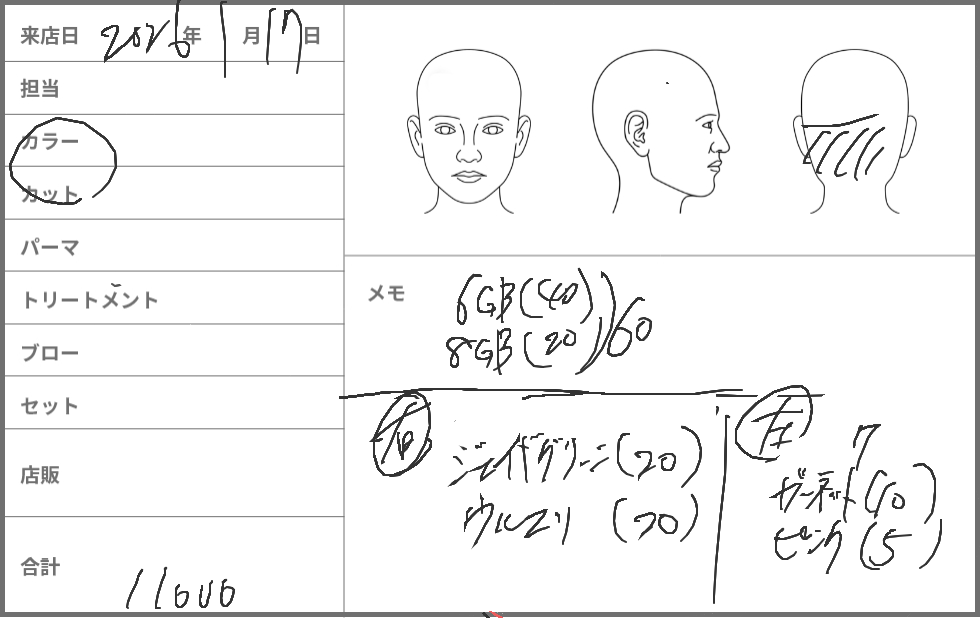 来店日 2026年 1月17日
担当
カラー
カット
パーマ
トリートメント
ブロー
セット
店販
合計 11000
メモ
6GB(40)
8GB(20) 60
右
ジェイドグリーン(20)
ウルエリ (20)
左
7
ガーネット(10)
ピンク(5)